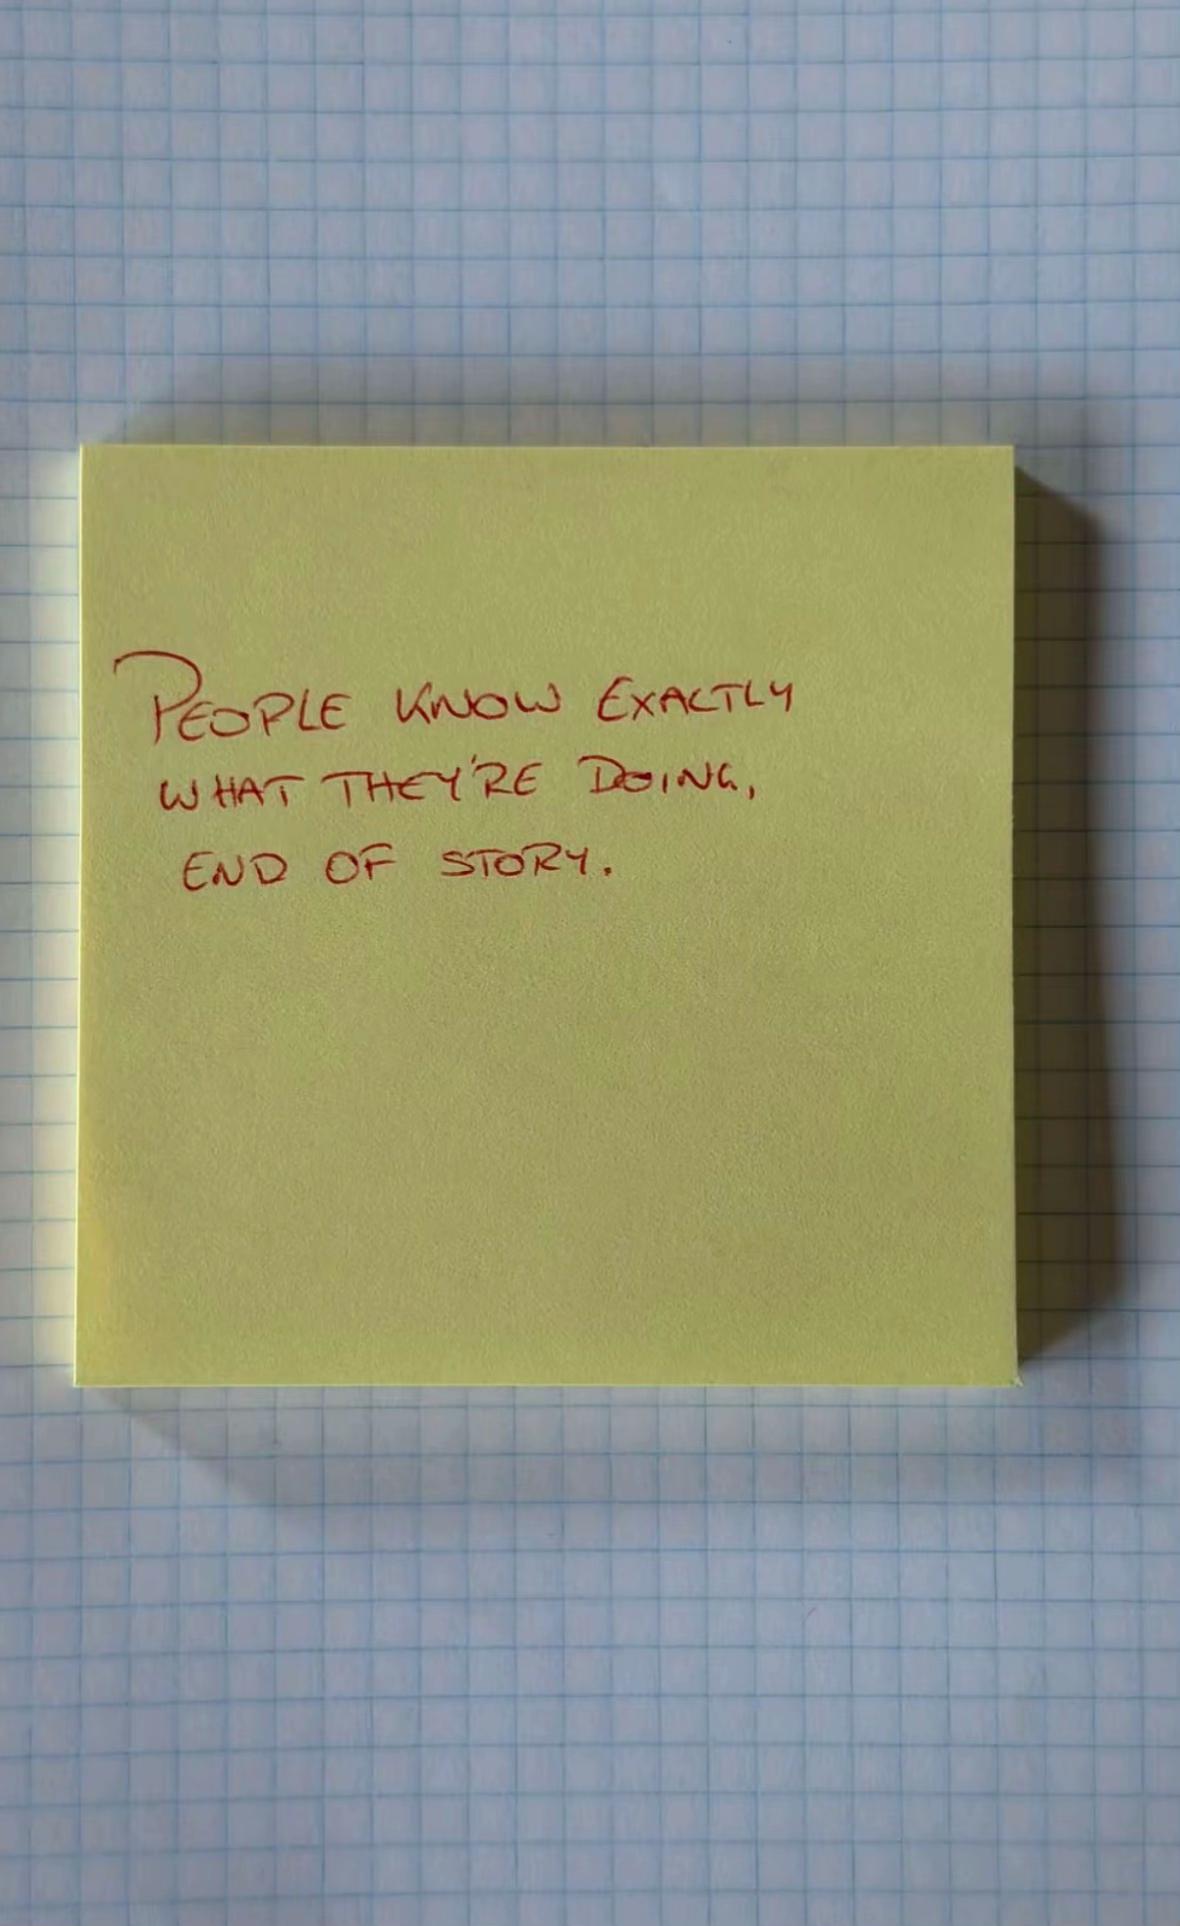 PEOPLE KNOW EXACTLY
WHAT THEY'RE DOING,
END OF STORY.